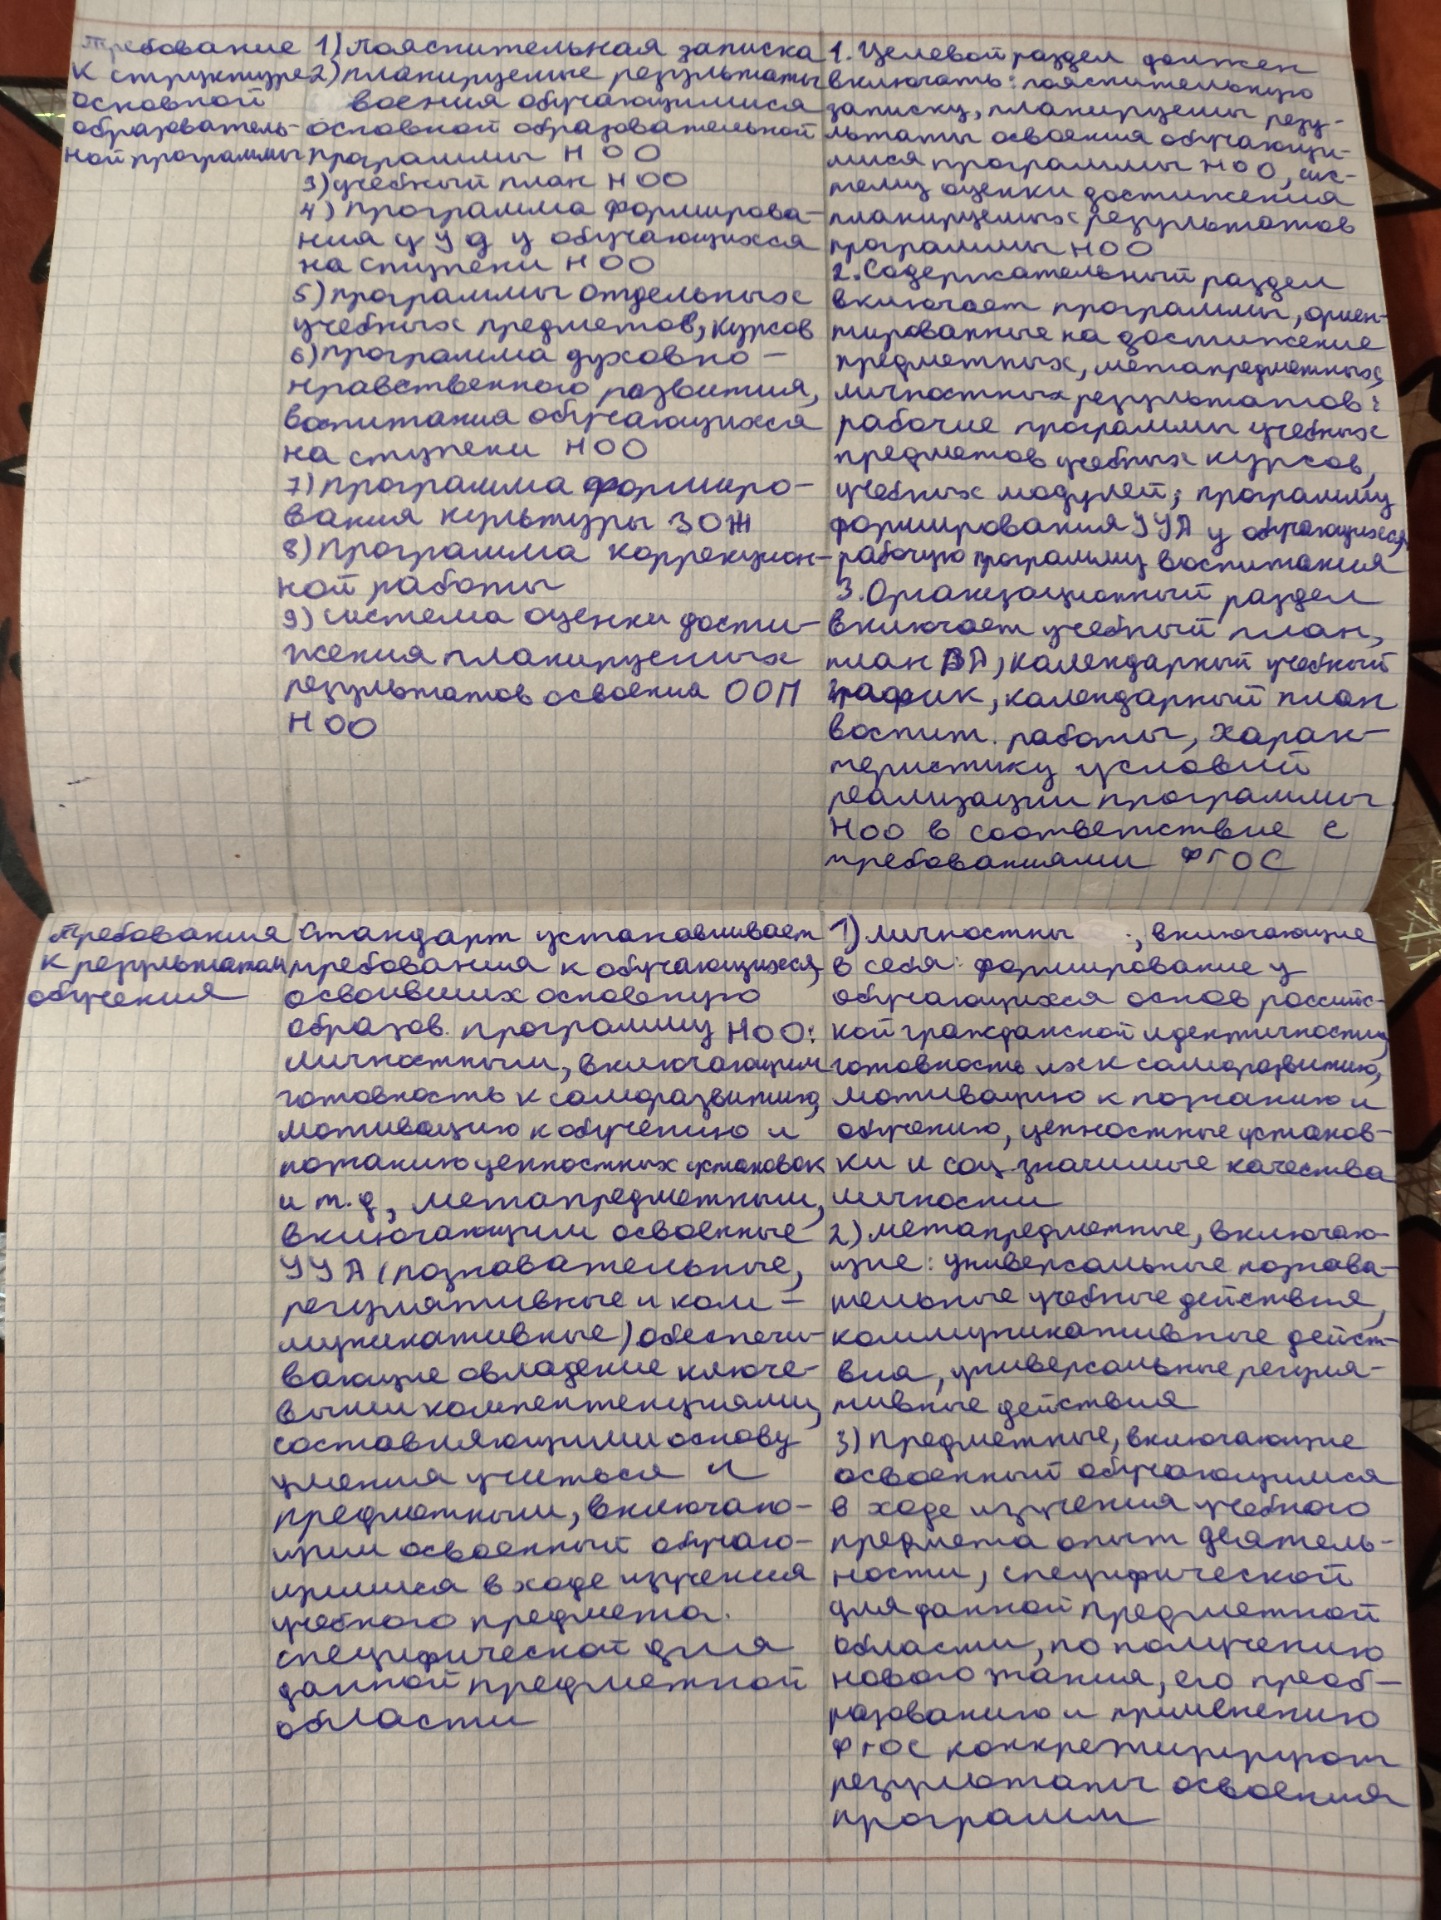 Требование
к структуре
основной
образователь-
ной программы
1) пояснительная записка
2) планируемые результаты
воения обучающимися
основной образовательной
программы НОО
3) учебный план НОО
4) программа формирова-
ния УУД у обучающихся
на ступени НОО
5) программы отдельных
учебных предметов, курсов
6) программа духовно-
нравственного развития,
воспитания обучающихся
на ступени НОО
7) программа формиро-
вания культуры ЗОЖ
8) программа коррекцион-
ной работы
9) система оценки дости-
жения планируемых
результатов освоения ООП
НОО
1. Целевой раздел должен
включать: пояснительную
записку, планируемы резу-
льтаты освоения обучающи-
мися программы НОО, сис-
тему оценки достижения
планируемых результатов
программы НОО
2. Содержательный раздел
включает программы, ориен-
тированные на достижение
предметных, метапредметных,
личностных результатов:
рабочие программы учебных
предметов учебных курсов,
учебных модулей; программу
формирования УУД у обучающихся,
рабочую программу воспитания
3. Организационный раздел
включает учебный план,
план ВД, календарный учебный
график, календарный план
воспит. работы, харак-
теристику условий
реализации программы
НОО в соответствие с
требованиями ФГОС
Требования
к результатам
обучения
Стандарт устанавливает
требования к обучающихся,
освоивших основную
образов. программу НОО:
личностным, включающим
готовность к саморазвитию,
мотивацию к обучению и
познанию ценностных установок
и т.д, метапредметным,
включающим освоенные
УУД (познавательные,
регулятивные и ком-
муникативные) обеспечи-
вающие овладение ключе-
выми компетенциями,
составляющими основу
умения учиться и
предметным, включаю-
щим освоенный обучаю-
щимися в ходе изучения
учебного предмета.
специфической для
данной предметной
области
1) личностны , включающие
в себя: формирование у
обучающихся основ россий-
кой гражданской идентичности,
готовность их к саморазвитию,
мотивацию к познанию и
обучению, ценностные установ-
ки и соц. значимые качества
личности
2) метапредметные, включаю-
щие: универсальные познава-
тельные учебные действия,
коммуникативные дейст-
вия, универсальные регуля-
тивные действия
3) предметные, включающие
освоенный обучающимися
в ходе изучения учебного
предмета опыт деятель-
ности, специфической
для данной предметной
области, по получению
нового знания, его преоб-
разованию и применению
ФГОС
результаты освоения
программ